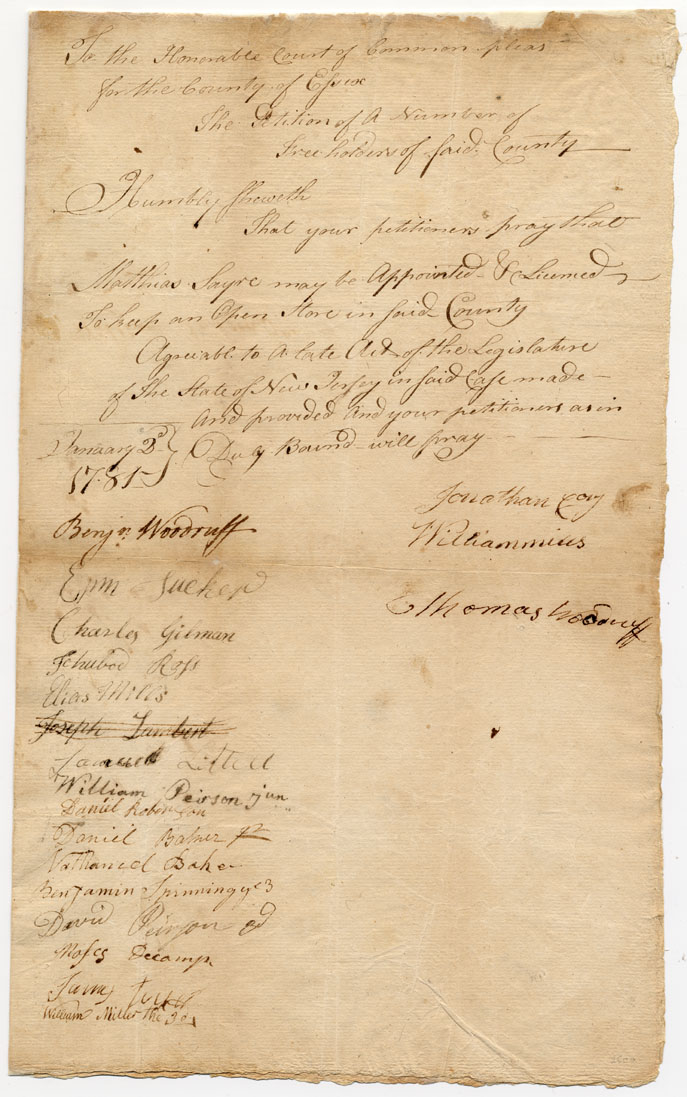 To the Honorable Court of Common pleas
for the County of Essex
The Petition of A Number of
Freeholders of said County
Humbly Sheweth
That your petitioners pray that
Matthias Sayre may be Appointed & Licensed
To keep an Open Store in said County
Agreeable to A late Act of the Legislature
of The State of New Jersey in said Case made
And provided And your petitioners as in
Duty Bound will pray
January 2d
1781
Jonathan Cory
Benjn Woodruff
William
Epm Tucker
Thomas Woodruff
Charles Gilman
Ichubod Ross
Elias Mills
Joseph Lambert
Samuel Littell
William Peirson jun
Daniel
Daniel Baker
Nathaniel Baker
Benjamin Spinningye 3
David Peirson
Moses Decamp
William Miller the 3d